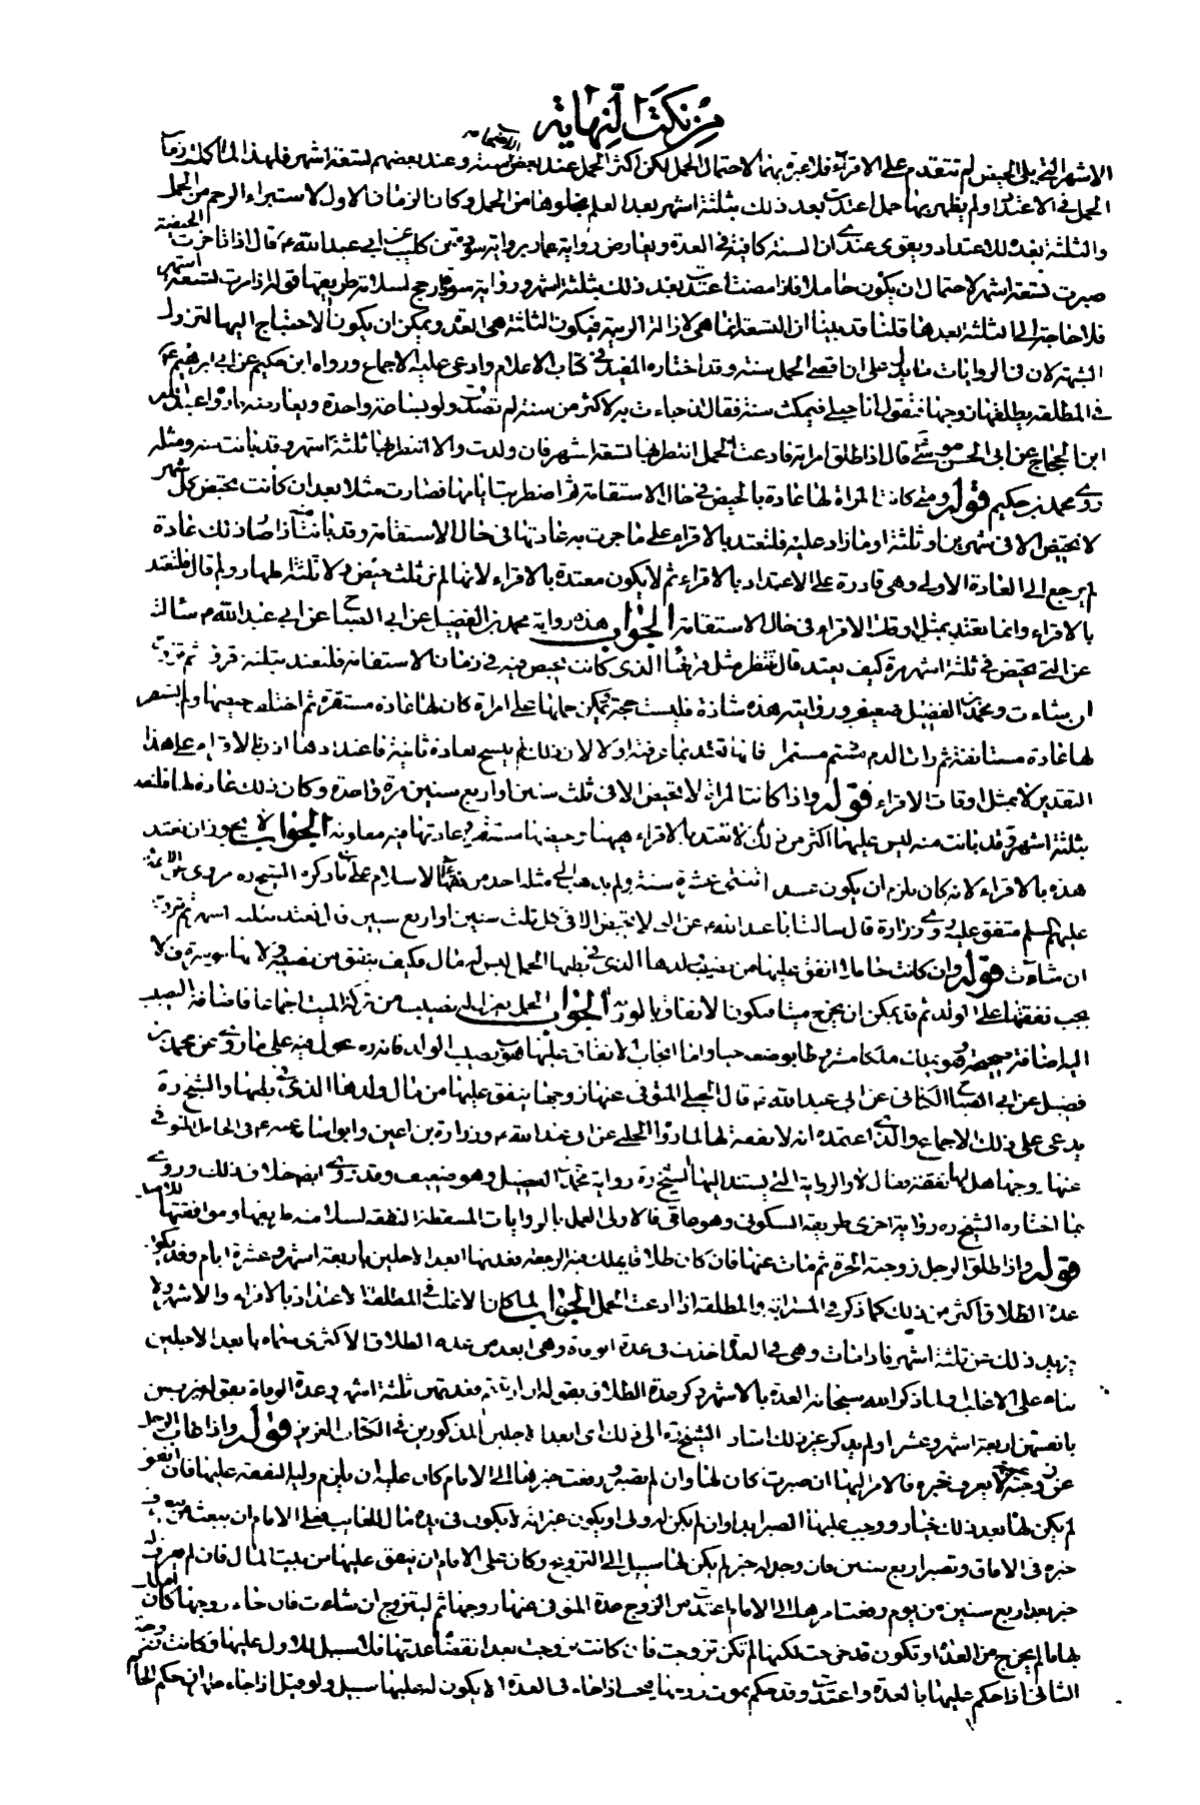 من نكت النهاية
الاشهر التي يلي الحيض لم تتقدم على الاقراء فلا عبرة بهما لاحتمال الحمل لكن اكثر الحمل عند بعض سنة وعند بعضهم تسعة اشهر فلهذا
الحمل في الاعتداد ولم يظهر بها حمل اعتدت بعد ذلك بثلثة اشهر بعد العلم بخلوها من الحمل وكان الزمان الاول لاستبراء الرحم من الحمل
والثلثة بعده للاعتداد ويقوى عندي ان السنة كافية في العدة ويعارض رواية عمار برواية سورة بن كليب عن ابي عبد الله ع قال اذا تاخرت الحيضة
صبرت تسعة اشهر لاحتمال ان يكون حاملا فاذا مضت اعتدت بعد ذلك بثلثة اشهر ورواية سورة ارجح لسلامة طريقها قوله اذا مرت تسعة اشهر
فلا حاجة الى الثلثة بعدها قلنا قد بينا ان التسعة انما هي لازالة الريبة فيكون الثلثة هي العدة ويمكن ان يكون الاحتياج اليها لتزول
الشبهة لان في الروايات ما يدل على ان اقصى الحمل سنة وقد اختاره المفيد في كتاب الاعلام وادعى عليه الاجماع ورواه ابن حكيم عن ابي ابرهيم ع
في المطلقة يطلقها زوجها فتقول انا حبلى فيمكث سنة فقال ان جاءت به لاكثر من سنة لم تصدق ولو بساعة واحدة ويعارضه ما رواه عبد الرحمن
ابن الحجاج عن ابي الحسن موسى قال اذا طلق امراته فادعت الحمل انتظر بها تسعة اشهر فان ولدت والا انتظر بها ثلثة اشهر وقد بانت منه ومثله
روى محمد بن حكيم قوله ومتى كانت المراة لها عادة بالحيض في حال الاستقامة ثم اضطربت ايامها فصارت مثلا بعد ان كانت تحيض كل شهر
لا تحيض الا في شهرين او ثلثة او ما زاد عليه فلتعتد بالاقراء على ما جرت به عادتها في حال الاستقامة وقد بانت منه اذا صار ذلك عادة
لم يرجع الى العادة الاولى وهي قادرة على الاعتداد بالاقراء ثم لا يكون معتدة بالاقراء لانها لم تر ثلث حيض ولا ثلثة اطهار ولم قال فلتعتد
بالاقراء وانما تعتد بمثل اوقات الاقراء في حال الاستقامة الجواب هذه رواية محمد بن الفضيل عن ابي الصباح عن ابي عبد الله ع سالته
عن التي تحيض في ثلثة اشهر مرة كيف يعتد قال تنتظر مثل قرئها الذي كانت تحيض فيه في زمان الاستقامة فلتعتد بثلثة قروء ثم تزوجت
ان شاءت ومحمد بن الفضيل ضعيف وروايته هذه شاذة فليست حجة يمكن حملها على امراة كان لها عادة مستقرة ثم اختلف حيضها ولم يستقر
لها عادة مستانفة ثم رات الدم مستمرا فانها تعتد بما
التقدير لا بمثل اوقات الاقراء قوله واذا كانت المراة لا تحيض الا في ثلث سنين او اربع سنين مرة واحدة وكان ذلك عادة لها فلتعتد
بثلثة اشهر وقد بانت منه ليس عليها اكثر من ذلك لم لا تعتد بالاقراء ههنا وحيضها مستقر وعادتها فيه معلومة الجواب لا يجوز ان تعتد
هذه بالاقراء لانه كان يلزم ان يكون عدتها اثنتى عشرة سنة ولم يذهب الى مثله احد من فقهاء الاسلام على ما ذكره الشيخ ره مروى عن الائمة
عليهم السلم متفق عليه وروى زرارة قال سالت ابا عبد الله ع عن التي لا تحيض الا في كل ثلث سنين او اربع سنين قال تعتد بثلثة اشهر ثم تزوجت
ان شاءت قوله وان كانت حاملا انفق عليها من نصيب ولدها الذي في بطنها الحمل ليس له مال فكيف ينفق من نصيبه
يجب نفقتها على الولد ثم قد يمكن ان يخرج ميتا فيكون الانفاق بالورثة الجواب الحمل يعزل له نصيب من تركة الميت اجماعا فاضافة النصيب
اليه اضافة صحيحة
فضيل عن ابي الصباح الكناني عن ابي عبد الله ع قال الحبلى المتوفى عنها زوجها ينفق عليها من مال ولدها الذي في بطنها والشيخ ره
يدعى على ذلك الاجماع والذي اعتمده انه لا نفقة لها لما رواه الحلبي عن ابي عبد الله ع وزرارة بن اعين وابو اسامة عنه ع في الحامل المتوفى
عنها زوجها هل لها نفقة فقال لا والرواية التي يستند اليها الشيخ ره رواية محمد بن الفضيل وهو ضعيف وقد روى ايضا خلاف ذلك وروى
ما اختاره الشيخ ره رواية اخرى طريقها السكوني وهو عامي فالاولى العمل بالروايات المسقطة للنفقة لسلامة طريقها وموافقتها للاصل
قوله واذا طلق الرجل زوجته الحرة ثم مات عنها فان كان طلاقا يملك فيه الرجعة فعدتها ابعد الاجلين اربعة اشهر وعشرة ايام وقد يكون
عدة الطلاق اكثر من ذلك كما ذكر في المسترابة والمطلقة اذا ادعت الحمل الجواب لما كان الاغلب في المطلقة الاعتداد بالاقراء والاشهر ولا
يزيد ذلك عن ثلثة اشهر فاذا مات وهي في العدة اخذت في عدة الوفاة وهي ابعد من عدة الطلاق الاكثرى سماه بابعد الاجلين
بناء على الاغلب ولما ذكر الله سبحانه العدة بالاشهر ذكر عدة الطلاق بقوله ان ارتبتم فعدتهن ثلثة اشهر وعدة الوفاة بقوله يتربصن
بانفسهن اربعة اشهر وعشرا ولم يذكر غير ذلك اشار الشيخ ره الى ذلك اى ابعد الاجلين المذكورين في الكتاب العزيز قوله واذا غاب الرجل
عن زوجته لا يعرف خبره فالامر اليها ان صبرت كان لها وان لم تصبر ورفعت خبرها الى الامام كان عليه ان يلزم وليه النفقة عليها فان انفق
لم يكن لها بعد ذلك خيار ووجب عليها الصبر ابدا وان لم يكن له ولى او يكون غير انه لا يكون في يده مال للغايب فعلى الامام ان يبعث من يتعرف
خبره في الافاق وتصبر اربع سنين فان وجد له خبر لم يكن لها سبيل الى التزويج وكان على الامام ان ينفق عليها من بيت المال فان لم يعرف له
خبر بعد اربع سنين من يوم رفعت امرها الى الامام اعتدت من الزوج عدة المتوفى عنها زوجها ثم لتتزوج ان شاءت فان جاء زوجها كان املك
بها ما لم يخرج من العدة او تكون قد خرجت لكنها لم تكن تزوجت فان كانت تزوجت بعد انقضاء عدتها فلا سبيل للاول عليها وكانت زوجة
الثاني اذا حكم عليها بالعدة واعتدت وقد حكم بموت زوجها اذا جاء في العدة الا يكون له عليها سبيل ولو قيل اذا جاء